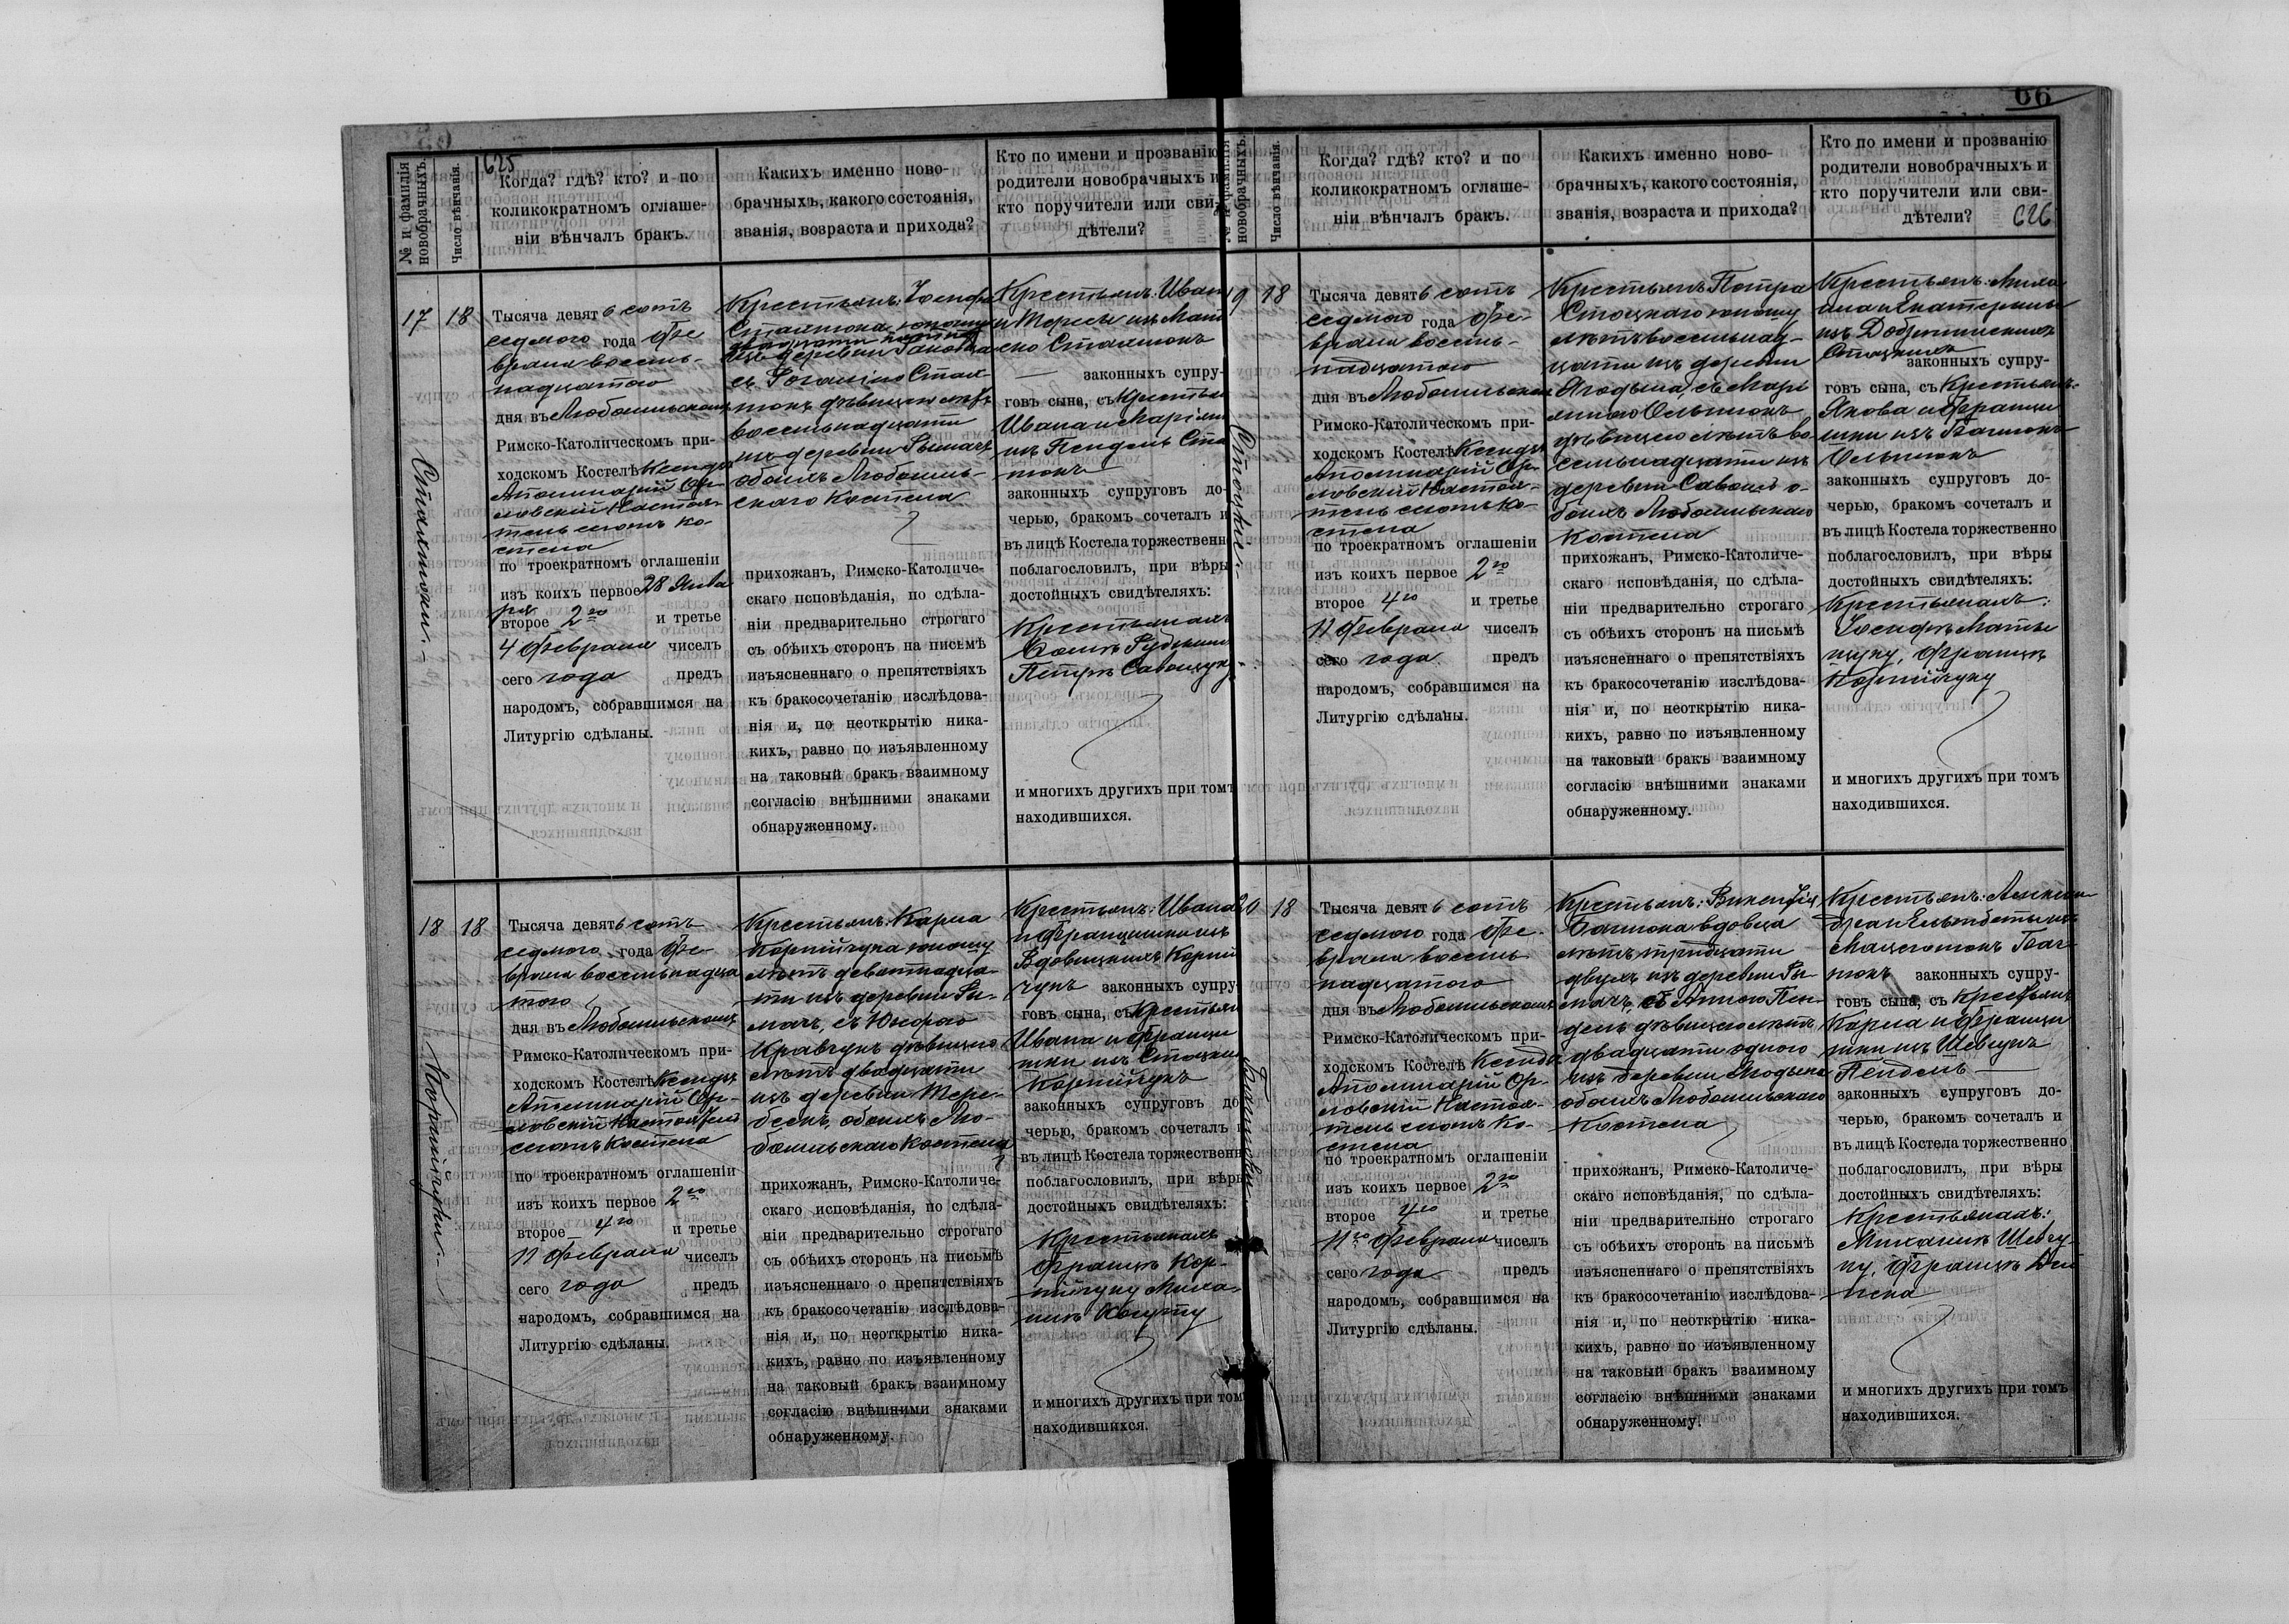 66
№ и фамилія
новобрачныхъ.
Число вѣнчанія.
625
Когда? гдѣ? кто? и по
коликократномъ оглаше-
ніи вѣнчалъ бракъ.
Какихъ именно ново-
брачныхъ, какого состоянія,
званія, возраста и прихода?
Кто по имени и прозванію
родители новобрачныхъ и
кто поручители или сви-
дѣтели?
17
18
Тысяча девятьсотъ
седмого года Фе
враля восемь-
надцатого
дня въ Любомльскомъ
Римско-Католическомъ при-
ходскомъ Костелѣ Ксендзъ
Аполинарій Ор-
ловскій Настоя-
тель сего Ко-
стела
по троекратномъ оглашеніи
изъ коихъ первое 28 Янва
ря
второе 2го и третье
4 Февраля чиселъ
сего года предъ
народомъ, собравшимся на
Литургію сдѣланы.
Крестьянъ: Іосифа
юношу
изъ деревни
съ
дѣвицею лѣтъ
восемьнадцати
изъ деревни Рымачъ
обоихъ Любомль-
скаго Костела
прихожанъ, Римско-Католиче-
скаго исповѣданія, по сдѣла-
ніи предварительно строгаго
съ обѣихъ сторонъ на письмѣ
изъясненнаго о препятствіяхъ
къ бракосочетанію изслѣдова-
нія и, по неоткрытію ника-
кихъ, равно по изъявленному
на таковый бракъ взаимному
согласію внѣшними знаками
обнаруженному.
Крестьянъ: Ивана
и Тересы изъ
законныхъ супру-
говъ сына, съ Крестьян
Ивана и Маріанны
изъ Пендель
законныхъ супруговъ до-
черью, бракомъ сочеталъ и
въ лицѣ Костела торжественно
поблагословилъ, при вѣры
достойныхъ свидѣтеляхъ:
Крестьянахъ
Петрѣ Савощуку
и многихъ другихъ при томъ
находившихся.
18
18
Корнійчуки.-
Тысяча девятьсотъ
седмого года Фе-
враля восемьнадца
того
дня въ Любомльскомъ
Римско-Католическомъ при-
ходскомъ Костелѣ Ксендзъ
Аполинарій Ор-
ловскій Настоятель
сего Костела
по троекратномъ оглашеніи
изъ коихъ первое 2го
второе 4го и третье
11 Февраля чиселъ
сего года предъ
народомъ, собравшимся на
Литургію сдѣланы.
Крестьянъ: Карла
Корнійчука юношу
лѣтъ девятнадца-
ти изъ деревни Ры-
мачъ, съ Юзефою
Кравчукъ дѣвицею
лѣтъ двадцати
изъ деревни Тере-
бейки, обоихъ Лю-
бомльскаго Костела
прихожанъ, Римско-Католиче-
скаго исповѣданія, по сдѣла-
ніи предварительно строгаго
съ обѣихъ сторонъ на письмѣ
изъясненнаго о препятствіяхъ
къ бракосочетанію изслѣдова-
нія и, по неоткрытію ника-
кихъ, равно по изъявленному
на таковый бракъ взаимному
согласію внѣшними знаками
обнаруженному.
Крестьянъ: Ивана
и Францишки изъ
Вдовицкихъ Корній
чукъ законныхъ супру-
говъ сына, съ Крестьян
Ивана и Франци
шки изъ Стоцкихъ
Корнійчукъ
законныхъ супруговъ до-
черью, бракомъ сочеталъ и
въ лицѣ Костела торжественно
поблагословилъ, при вѣры
достойныхъ свидѣтеляхъ:
Крестьянахъ
Францѣ Кор-
нійчуку Миха-
илѣ Когуту
и многихъ другихъ при томъ
находившихся.
№ и фамилія
новобрачныхъ.
Число вѣнчанія.
Когда? гдѣ? кто? и по
коликократномъ оглаше-
ніи вѣнчалъ бракъ.
Какихъ именно ново-
брачныхъ, какого состоянія,
званія, возраста и прихода?
Кто по имени и прозванію
родители новобрачныхъ и
кто поручители или сви-
дѣтели?
626
19
18
Стоцкіе.-
Тысяча девятьсотъ
седмого года Фе-
враля восемь-
надцатого
дня въ Любомльскомъ
Римско-Католическомъ при-
ходскомъ Костелѣ Ксендзъ
Аполинарій Ор-
ловскій Настоя-
тель сего Ко-
стела
по троекратномъ оглашеніи
изъ коихъ первое 2го
второе 4го и третье
11 Февраля чиселъ
сего года предъ
народомъ, собравшимся на
Литургію сдѣланы.
Крестьянъ Петра
Стоцкаго юношу
лѣтъ восемьнад-
цати изъ деревни
Ягодына, съ Мари
анною
дѣвицею лѣтъ во
семьнадцати изъ
деревни о-
боихъ Любомльскаго
Костела
прихожанъ, Римско-Католиче-
скаго исповѣданія, по сдѣла-
ніи предварительно строгаго
съ обѣихъ сторонъ на письмѣ
изъясненнаго о препятствіяхъ
къ бракосочетанію изслѣдова-
нія и, по неоткрытію ника-
кихъ, равно по изъявленному
на таковый бракъ взаимному
согласію внѣшними знаками
обнаруженному.
Крестьянъ: Миха
ила и Екатерины
изъ
Стоцкихъ
законныхъ супру-
говъ сына, съ Крестьянъ
Якова и Франци
шки изъ Багнюкъ
законныхъ супруговъ до-
черью, бракомъ сочеталъ и
въ лицѣ Костела торжественно
поблагословилъ, при вѣры
достойныхъ свидѣтеляхъ:
Крестьянахъ:
Іосифѣ Маты
щуку, Францѣ
Корнійчуку
и многихъ другихъ при томъ
находившихся.
20
18
Тысяча девятьсотъ
седмого года Фе-
враля восемь-
надцатого
дня въ Любомльскомъ
Римско-Католическомъ при-
ходскомъ Костелѣ Ксендзъ
Аполинарій Ор-
ловскій Настоя-
тель сего Ко-
стела
по троекратномъ оглашеніи
изъ коихъ первое 2го
второе 4го и третье
11го Февраля чиселъ
сего года предъ
народомъ, собравшимся на
Литургію сдѣланы.
Крестьянъ: Викентія
Багнюка вдовца
лѣтъ тридцати
двухъ изъ деревни Ры-
мачъ, съ Анною Пен-
дель дѣвицею лѣтъ
двадцати одного
изъ деревни Ягодына
обоихъ Любомльскаго
Костела
прихожанъ, Римско-Католиче-
скаго исповѣданія, по сдѣла-
ніи предварительно строгаго
съ обѣихъ сторонъ на письмѣ
изъясненнаго о препятствіяхъ
къ бракосочетанію изслѣдова-
нія и, по неоткрытію ника-
кихъ, равно по изъявленному
на таковый бракъ взаимному
согласію внѣшними знаками
обнаруженному.
Крестьянъ: Алексан
дра и Ельжбеты изъ
Багн
юкъ законныхъ супру-
говъ сына, съ Крестьянъ
Карла и Франци
шки изъ Шевчукъ
Пендель
законныхъ супруговъ до-
черью, бракомъ сочеталъ и
въ лицѣ Костела торжественно
поблагословилъ, при вѣры
достойныхъ свидѣтеляхъ:
Крестьянахъ:
Михаилѣ Шевчу-
ку, Францѣ
и многихъ другихъ при томъ
находившихся.